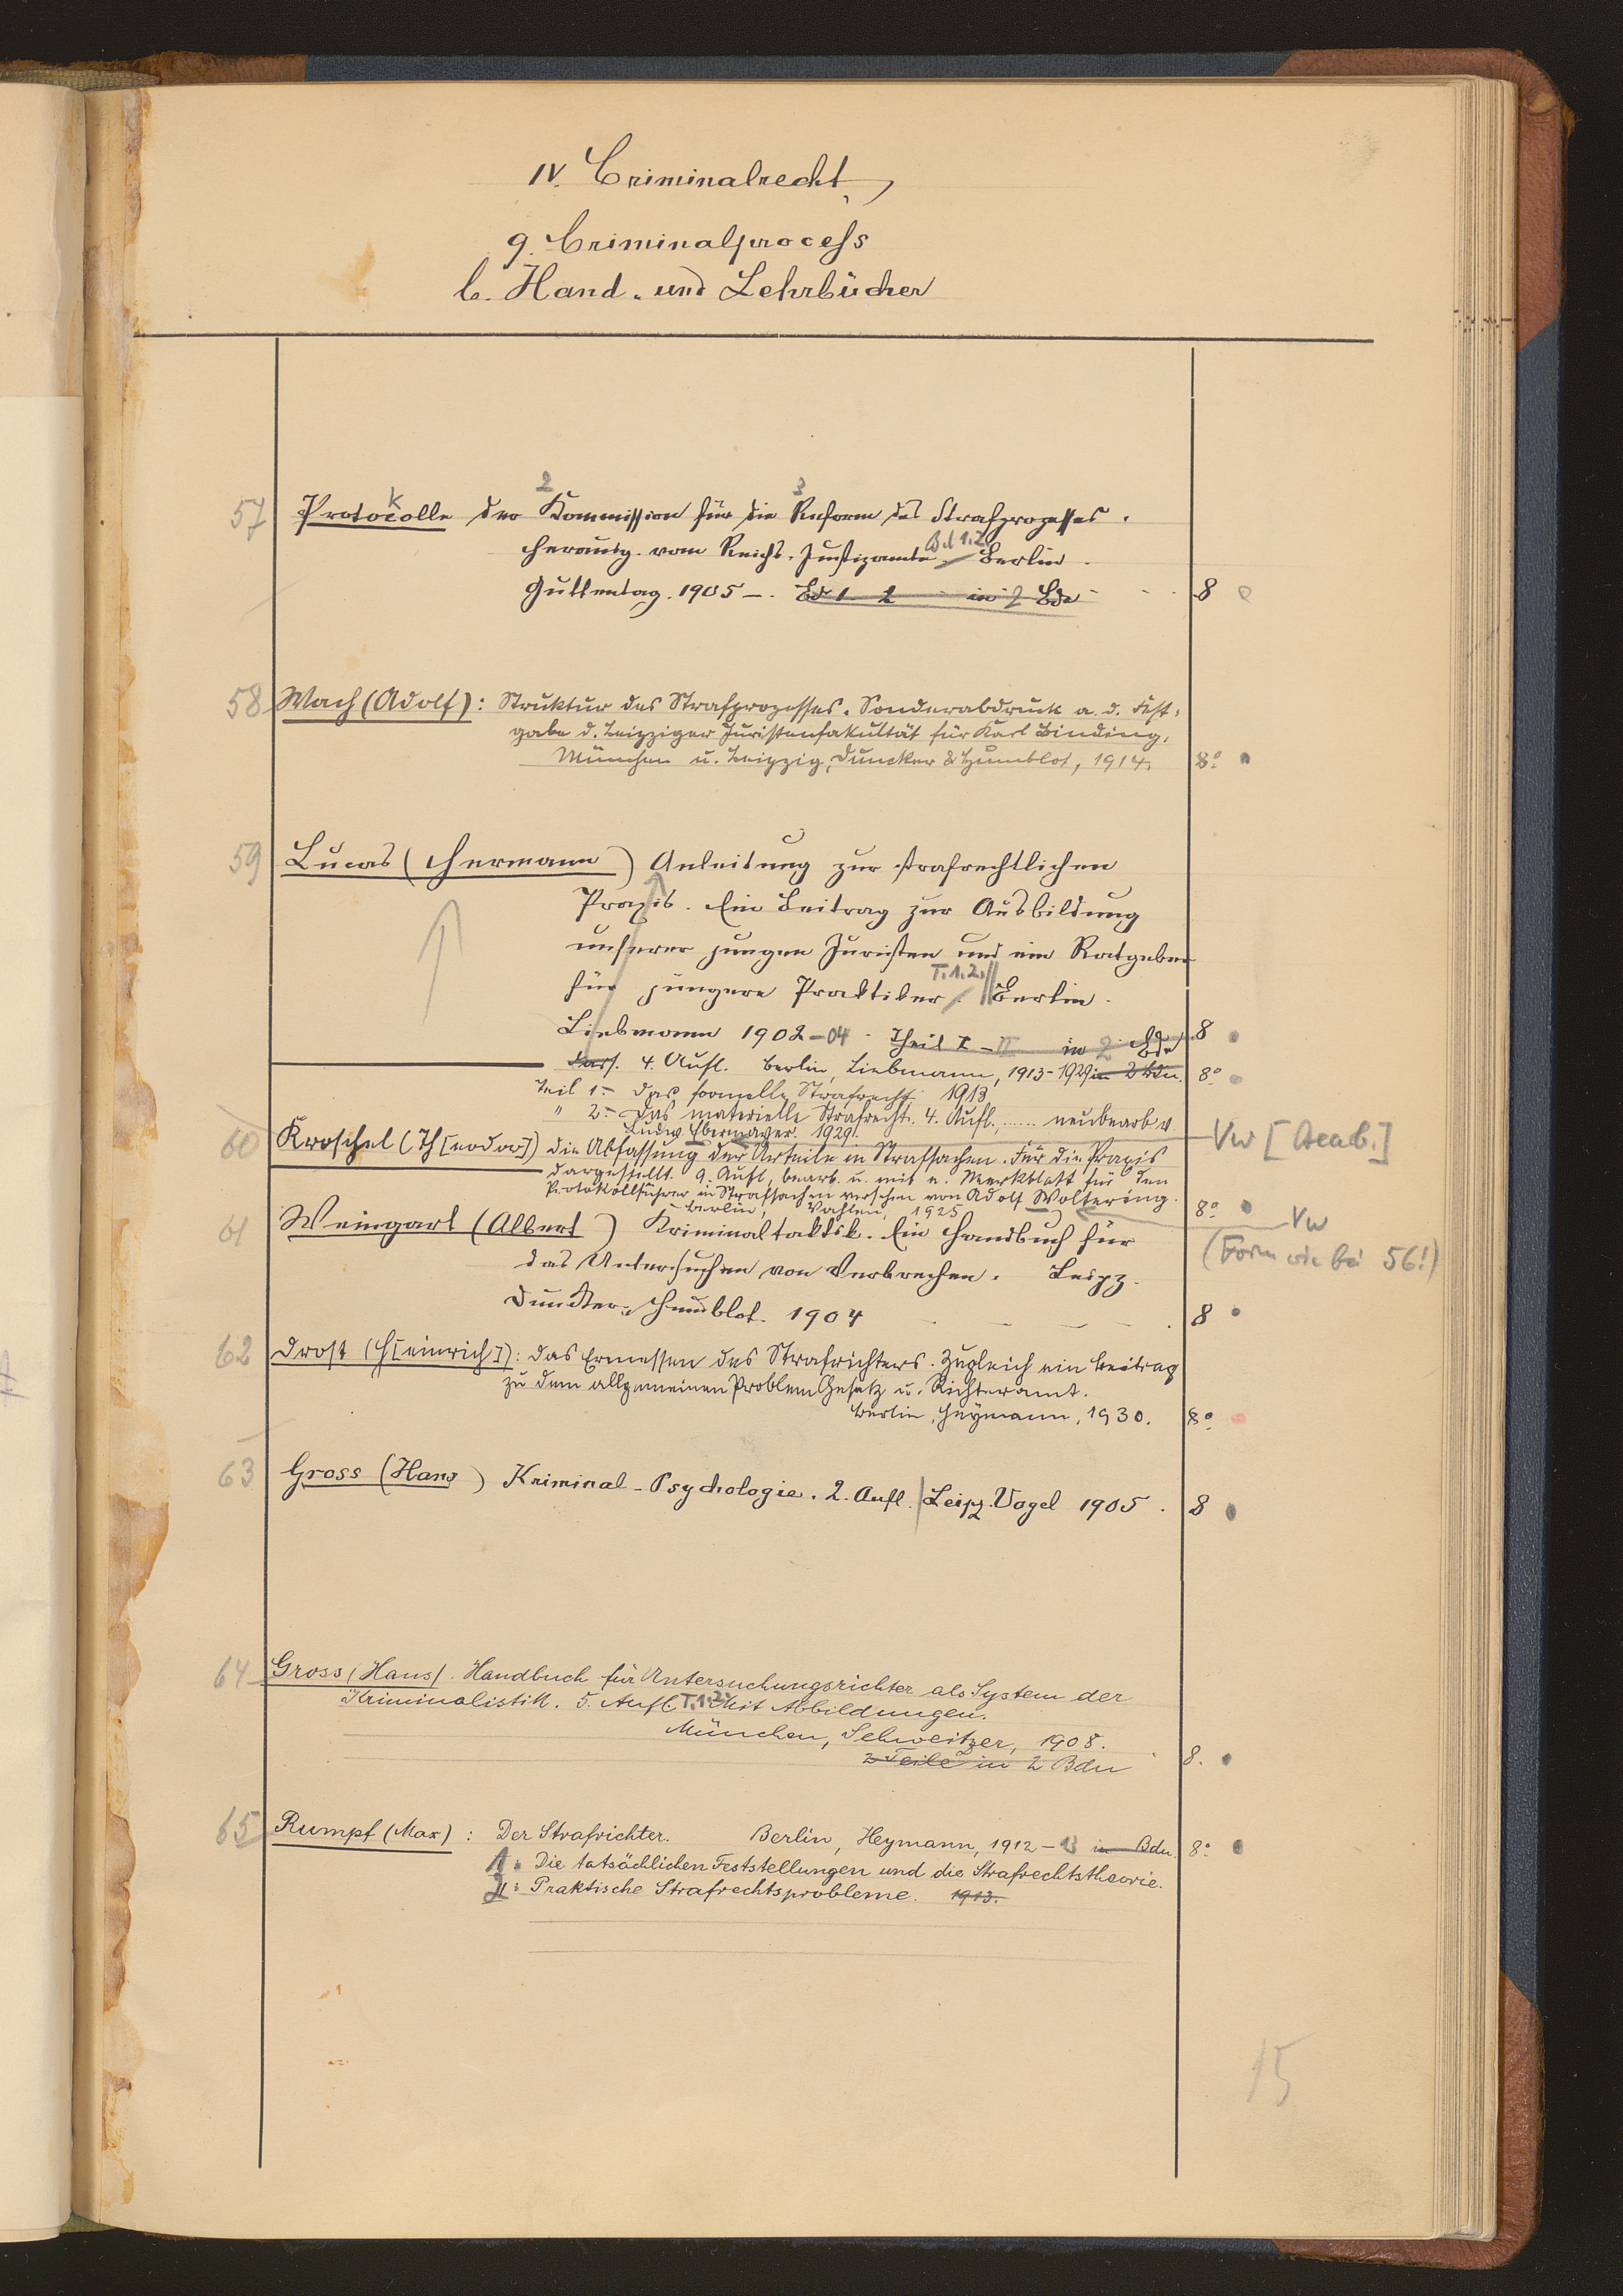 IV. Criminalrecht
g. Criminalprocess
b. Hand- und Lehrbücher
2 3
57 Protocolle k der Kommission für die Reform des Strafprozesses.
Herausg. vom Reichs-Justizamte. Bd 1.2. Berlin.
Guttentag. 1905 –. Bd 1 2 in 2 Bde 8
58 Wach (Adolf): Struktur des Strafprozesses. Sonderabdruck a. d. Fest-
gabe d. Leipziger Juristenfakultät für Karl Binding.
München u. Leipzig, Duncker & Humblot, 1914. 8º
59 Lucas (Hermann) Anleitung zur strafrechtlichen
Praxis. Ein Beitrag zur Ausbildung
unserer jungen Juristen und ein Ratgeber
für jüngere Praktiker. T.1.2. Berlin.
Liebmann 1902–04 Theil I–II in 2 Bde 8
Dass. 4. Aufl. Berlin, Liebmann, 1913-1929 in 2 Bdn. 8º
Teil 1:- Das formelle Strafrecht 1913
" 2:- Das materielle Strafrecht. 4. Aufl., ...... neubearb. v.
Ludw. Ebermayer. 1929. Vw
60 Kroschel (Th[eodor]) Die Abfassung der Urteile in Strafsachen. Für die Praxis
dargestellt. 9. Aufl., bearb. u. mit e. Merkblatt für den
Protokollführer in Strafsachen versehen von Adolf Woltering.
Berlin, Vahlen, 1925 8º Vw
(Form wie bei 56!)
61 Weingart (Albert) Kriminaltaktik. Ein Handbuch für
das Untersuchen von Verbrechen. Leipz.
Duncker u. Humblot. 1904 8
62 Drost (H[einrich]): Das Ermessen des Strafrichters. Zugleich ein Beitrag
zu dem allgemeinen Problem Gesetz u. Richteramt.
Berlin, Heymann, 1930. 8º
63 Gross (Hans) Kriminal-Psychologie. 2. Aufl. Leipz. Vogel 1905. 8
64 Gross (Hans). Handbuch für Untersuchungsrichter als System der
Kriminalistik. 5. Aufl. T.1.2. Mit Abbildungen.
München, Schweitzer, 1908.
2 Teile in 2 Bdn 8.
65 Rumpf (Max): Der Strafrichter. Berlin, Heymann, 1912–13 in Bdn. 8º
1: Die tatsächlichen Feststellungen und die Strafrechtstheorie.
2: Praktische Strafrechtsprobleme. 1913.
15